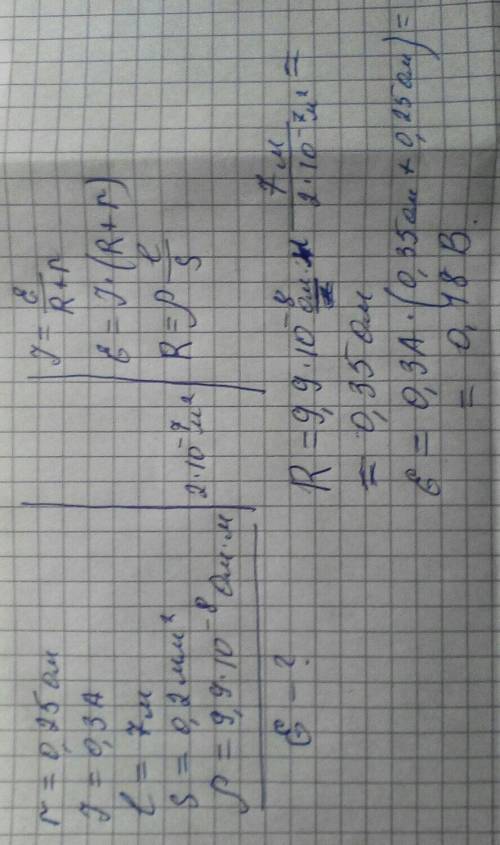 r = 0,25 Ом
J = 0,3 А
l = 7 м
S = 0,2 мм²
ρ = 9,9·10⁻⁸ Ом·м
ℰ – ?
2·10⁻⁷ м²
J = ℰ/(R+r)
ℰ = J·(R+r)
R = ρ l/S
R = 9,9·10⁻⁸ Ом·м 7 м/(2·10⁻⁷ м²) =
= 0,35 Ом
ℰ = 0,3 А·(0,35 Ом + 0,25 Ом) =
= 0,18 В.